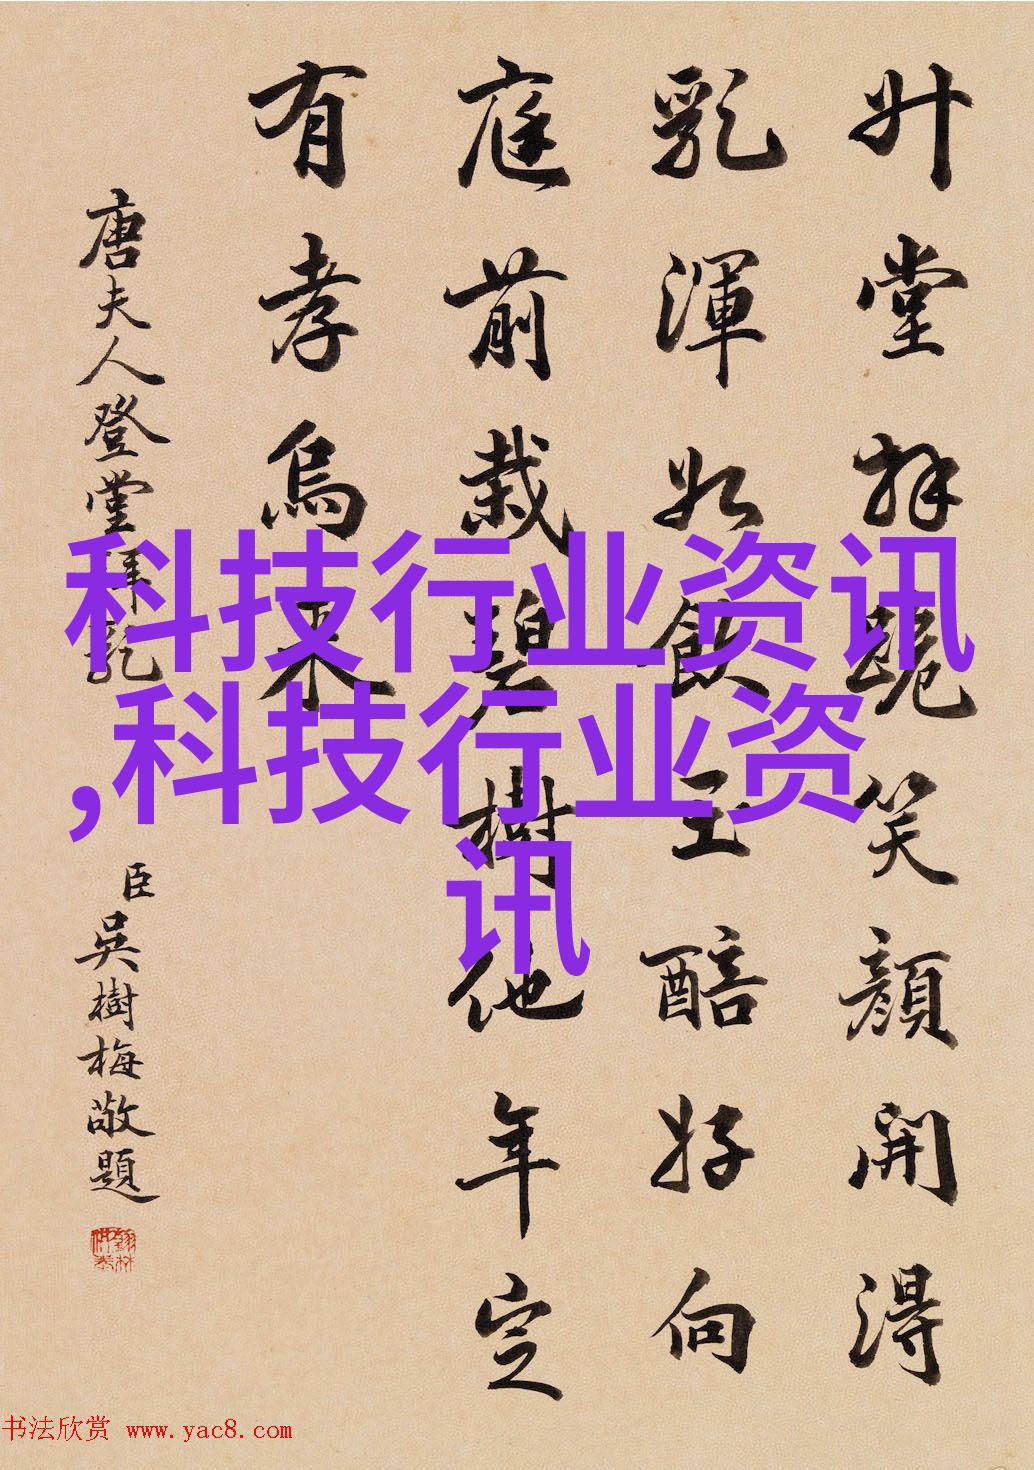 升堂拜跪笑顔開得
乳渾如飲玉醅好向
庭前栽碧樹他年定
有孝烏来
唐夫人登堂拜乳
臣吳樹梅敬題
科技行业资讯
,科技行业资
讯
书法欣赏 www.yac8.com